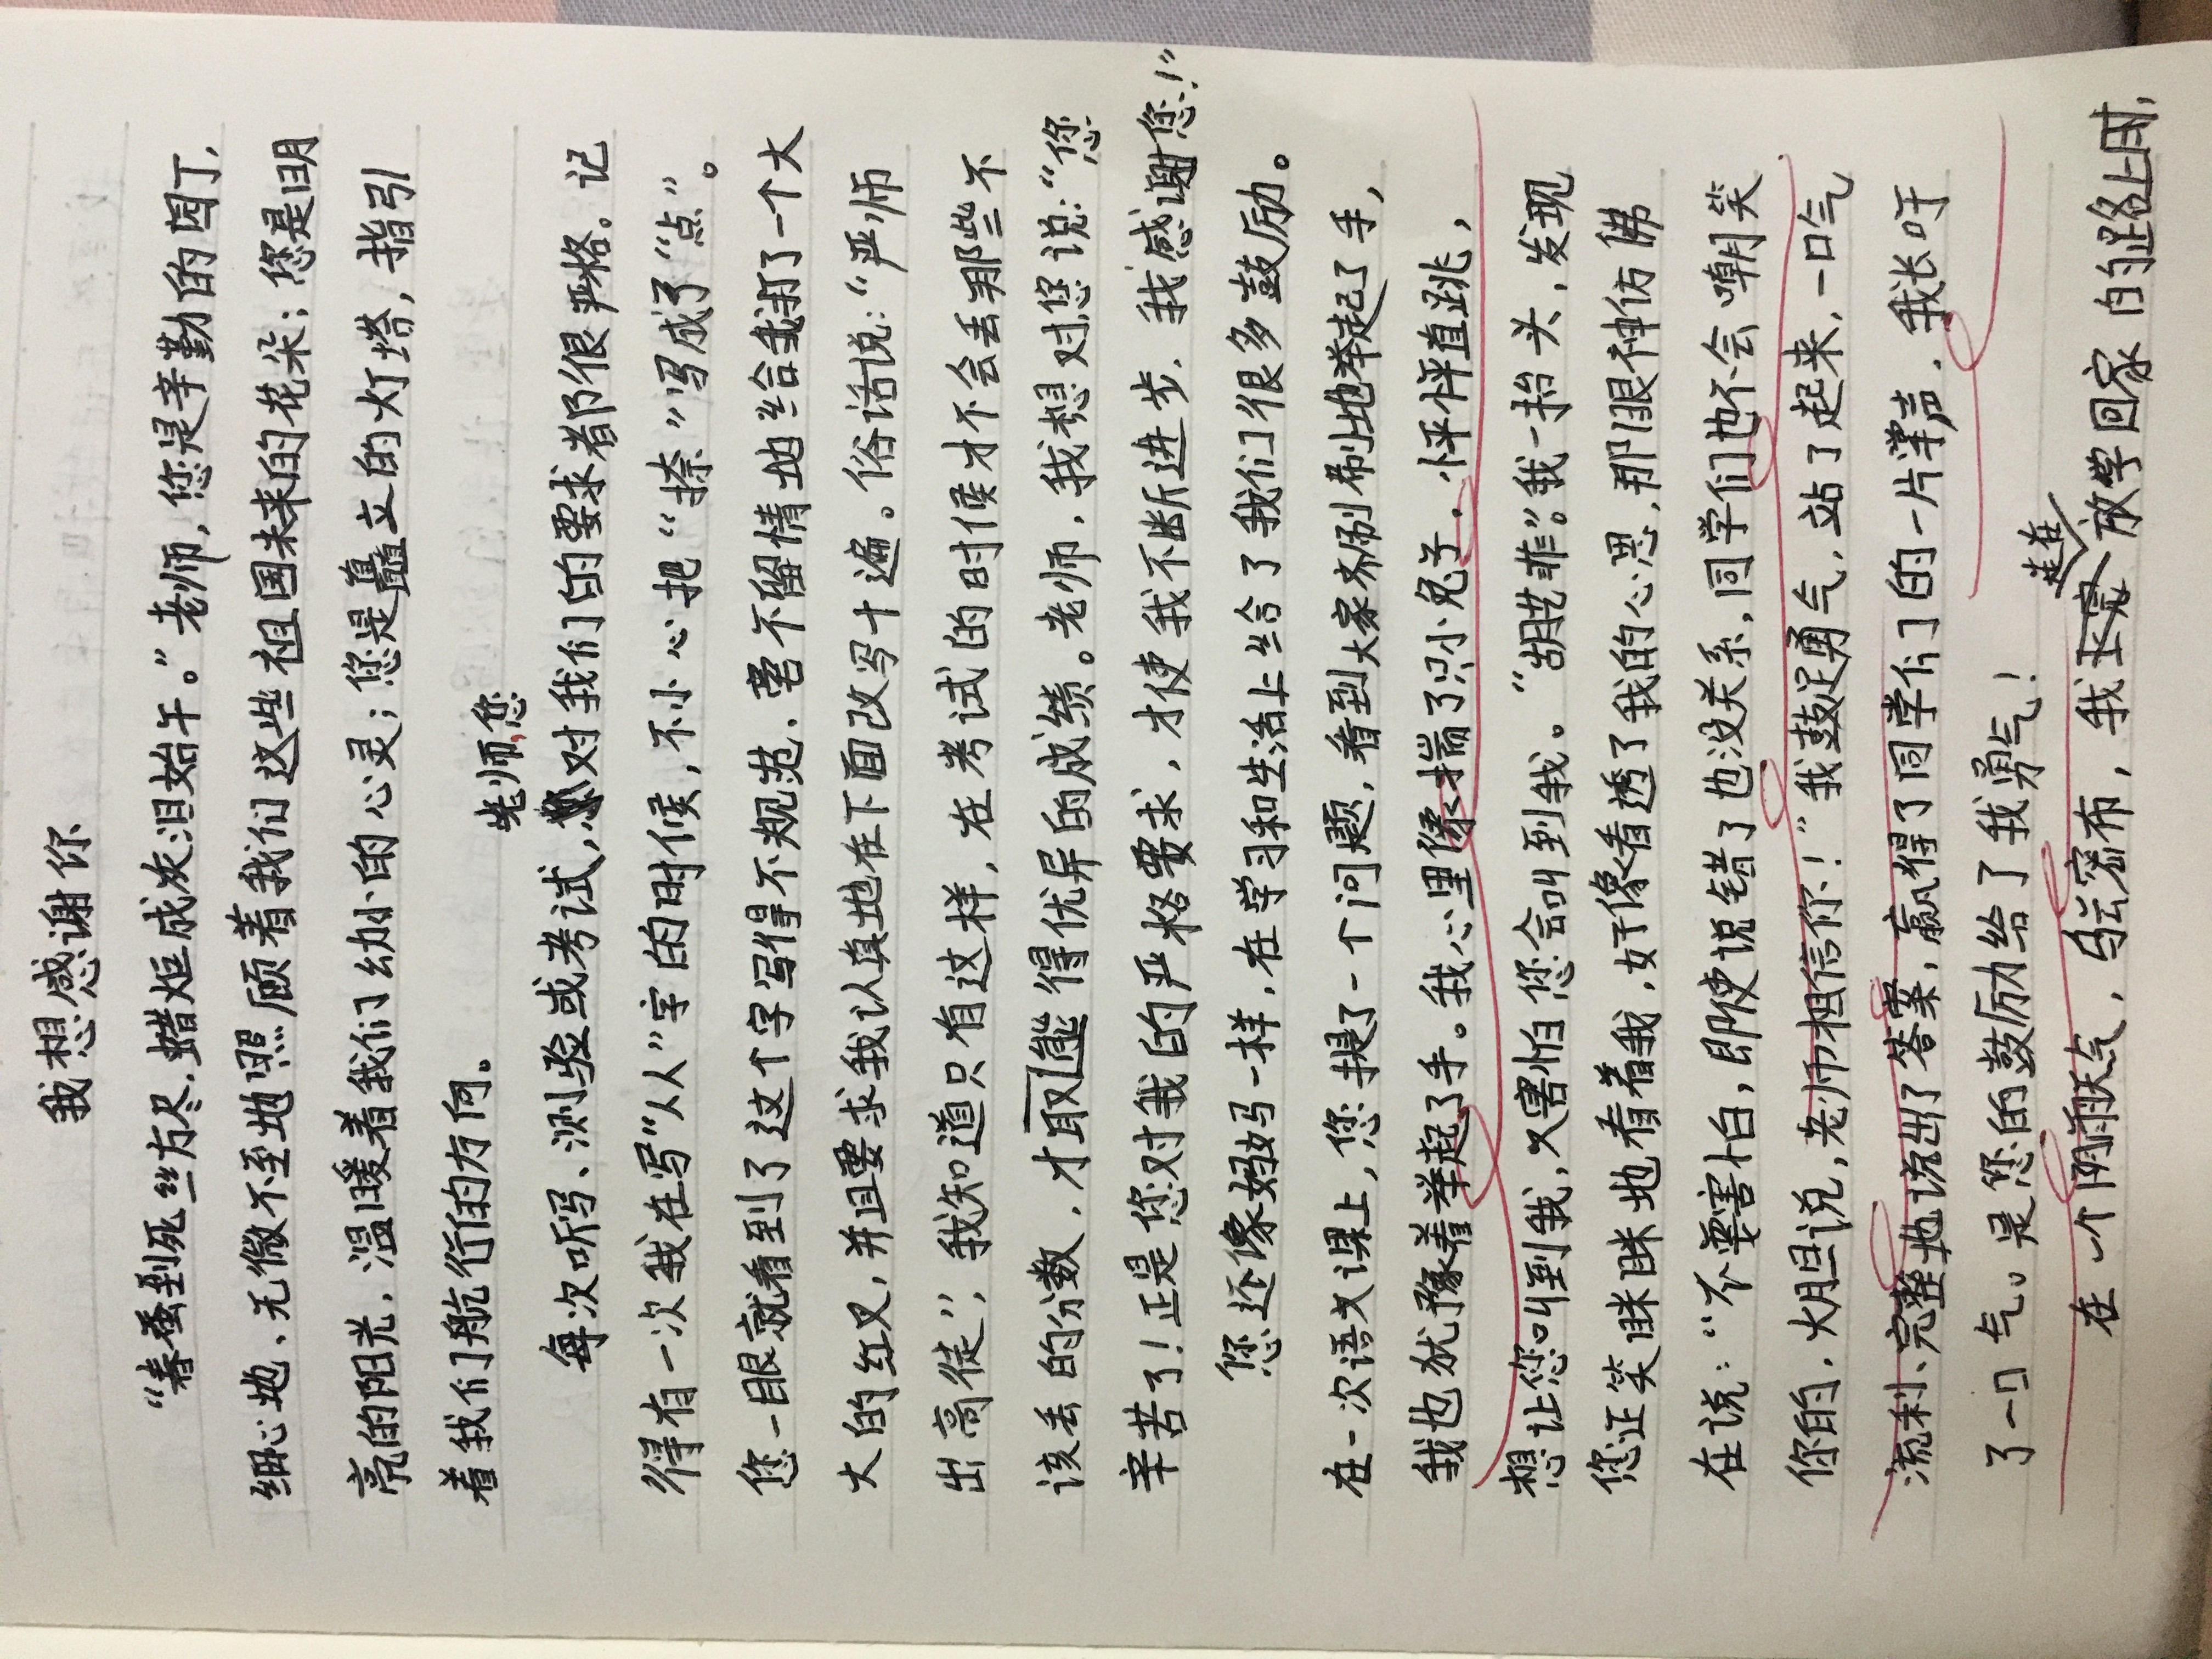 我想感谢你
“春蚕到死丝方尽，蜡炬成灰泪始干。”老师，您是辛勤的园丁，
细心地、无微不至地照顾着我们这些祖国未来的花朵；您是明
亮的阳光，温暖着我们幼小的心灵；您是矗立的灯塔，指引
着我们航行的方向。
老师，您
每次听写、测验或考试，对我们的要求都很严格。记
得有一次我在写“人”字的时候，不小心把“捺”写成了“点”。
您一眼就看到了这个字写得不规范，毫不留情地给我打了一个大
大的红叉，并且要求我认真地在下面改写十遍。俗话说：“严师
出高徒”，我知道只有这样，在考试的时候才不会丢那些不
该丢的分数，才取得优异的成绩。老师，我想对您说：“您
辛苦了！正是您对我的严格要求，才使我不断进步，我感谢您！”
您还像妈妈一样，在学习和生活上给了我们很多鼓励。
在一次语文课上，您提了一个问题，看到大家齐刷刷地举起了手，
我也犹豫着举起了手。我心里像揣了只小兔子，怦怦直跳，
想让您叫到我，又害怕您会叫到我。“胡艺菲”。我一抬头，发现
您正笑眯眯地看着我，好像看透了我的心思，那眼神仿佛
在说：“不要害怕，即使说错了也没关系，同学们也不会嘲笑
你的，大胆说，老师相信你！”我鼓足勇气，站了起来，一口气
流利、完整地说出了答案，赢得了同学们的一片掌声，我长吁
了一口气。是您的鼓励给了我勇气！
走在
在一个阴雨天气，乌云密布，我放学回家的路上时，